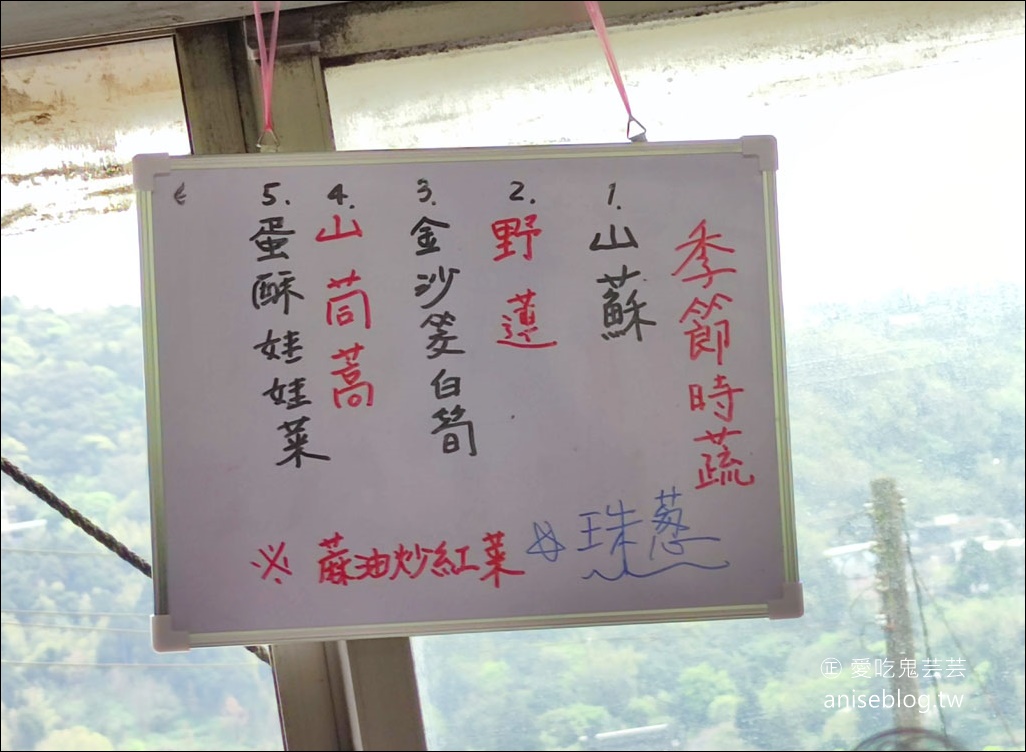 季節時蔬
1. 山蘇
2. 野蓮
3. 金沙筊白筍
4. 山茼蒿
5. 蛋酥娃娃菜
※ 蔴油炒紅菜
珠蔥
㊣ 愛吃鬼芸芸
aniseblog.tw